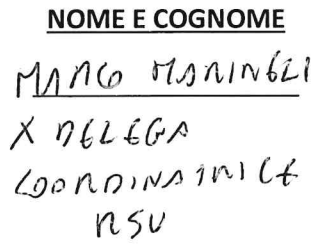 NOME E COGNOME
MARCO MARINELLI
X DELEGA
COORDINATRICE
RSU